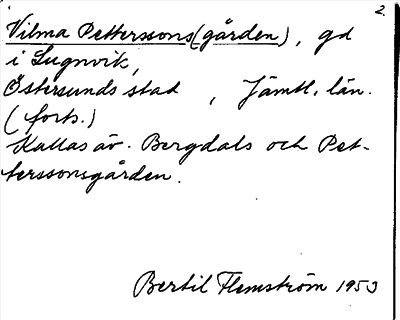 2.
Vilma Petterssons(gården), gd
i Lugnvik,
Östersunds stad , Jämtl. län.
(forts.)
Kallas äv. Bergdals och Pet-
terssonsgården.
Bertil Flemström 1953